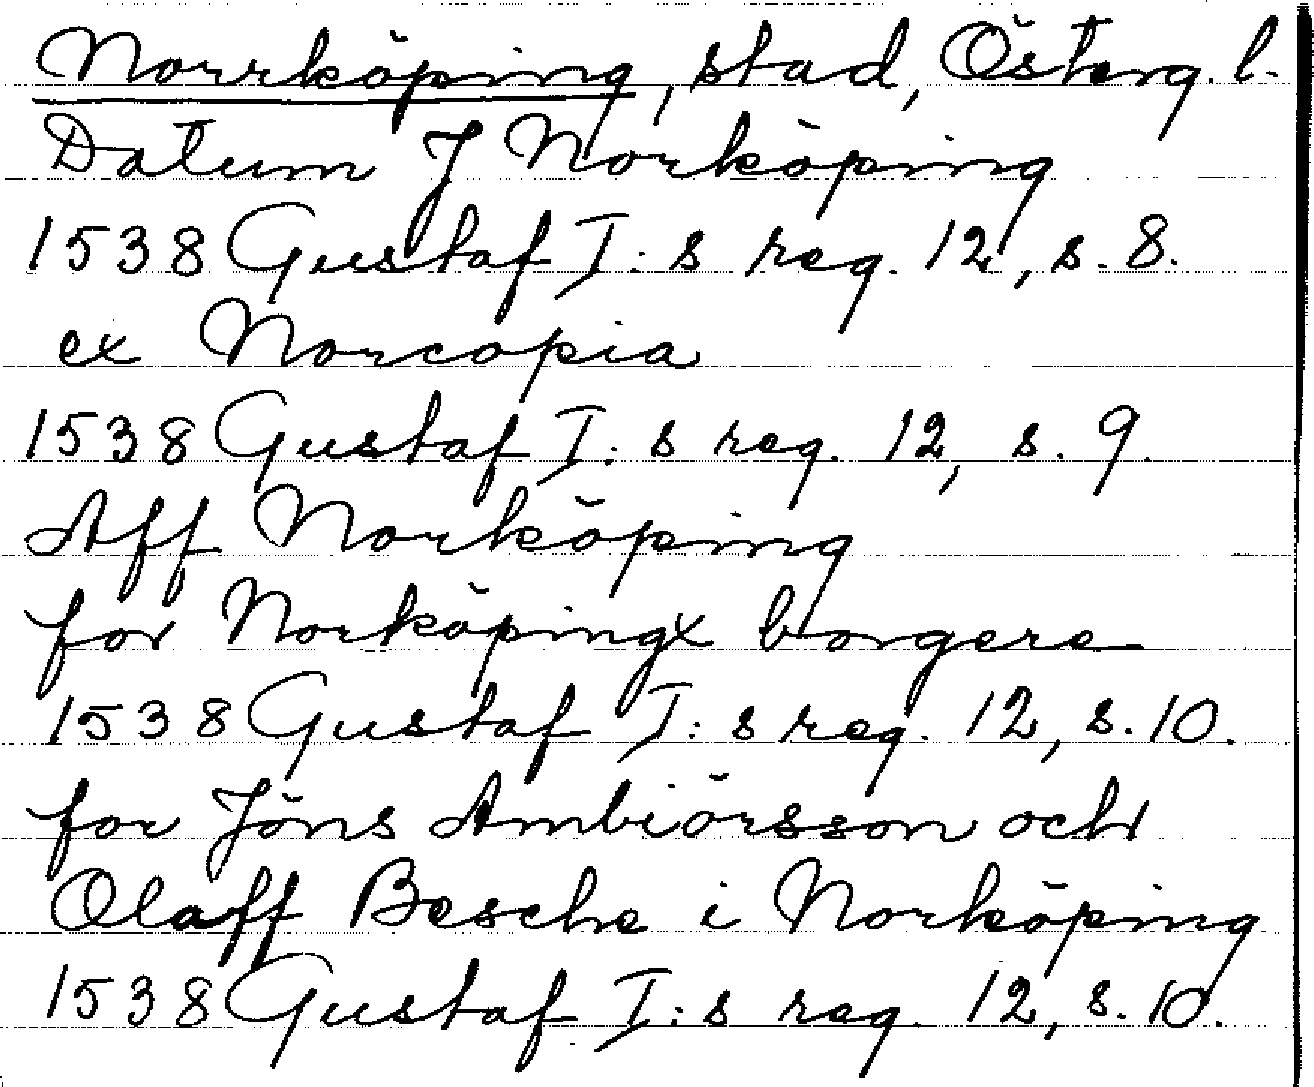 Norrköping, stad, Österg. l.
Datum J Norköping
1538 Gustaf I:s reg. 12, s. 8.
ex Norcopia
1538 Gustaf I:s reg. 12, s. 9.
Aff Norköping
for Norköpingx borgere
1538 Gustaf I:s reg. 12, s. 10.
for Jöns Ambiörsson och
Olaff Besche i Norköping
1538 Gustaf I:s reg. 12, s. 10.